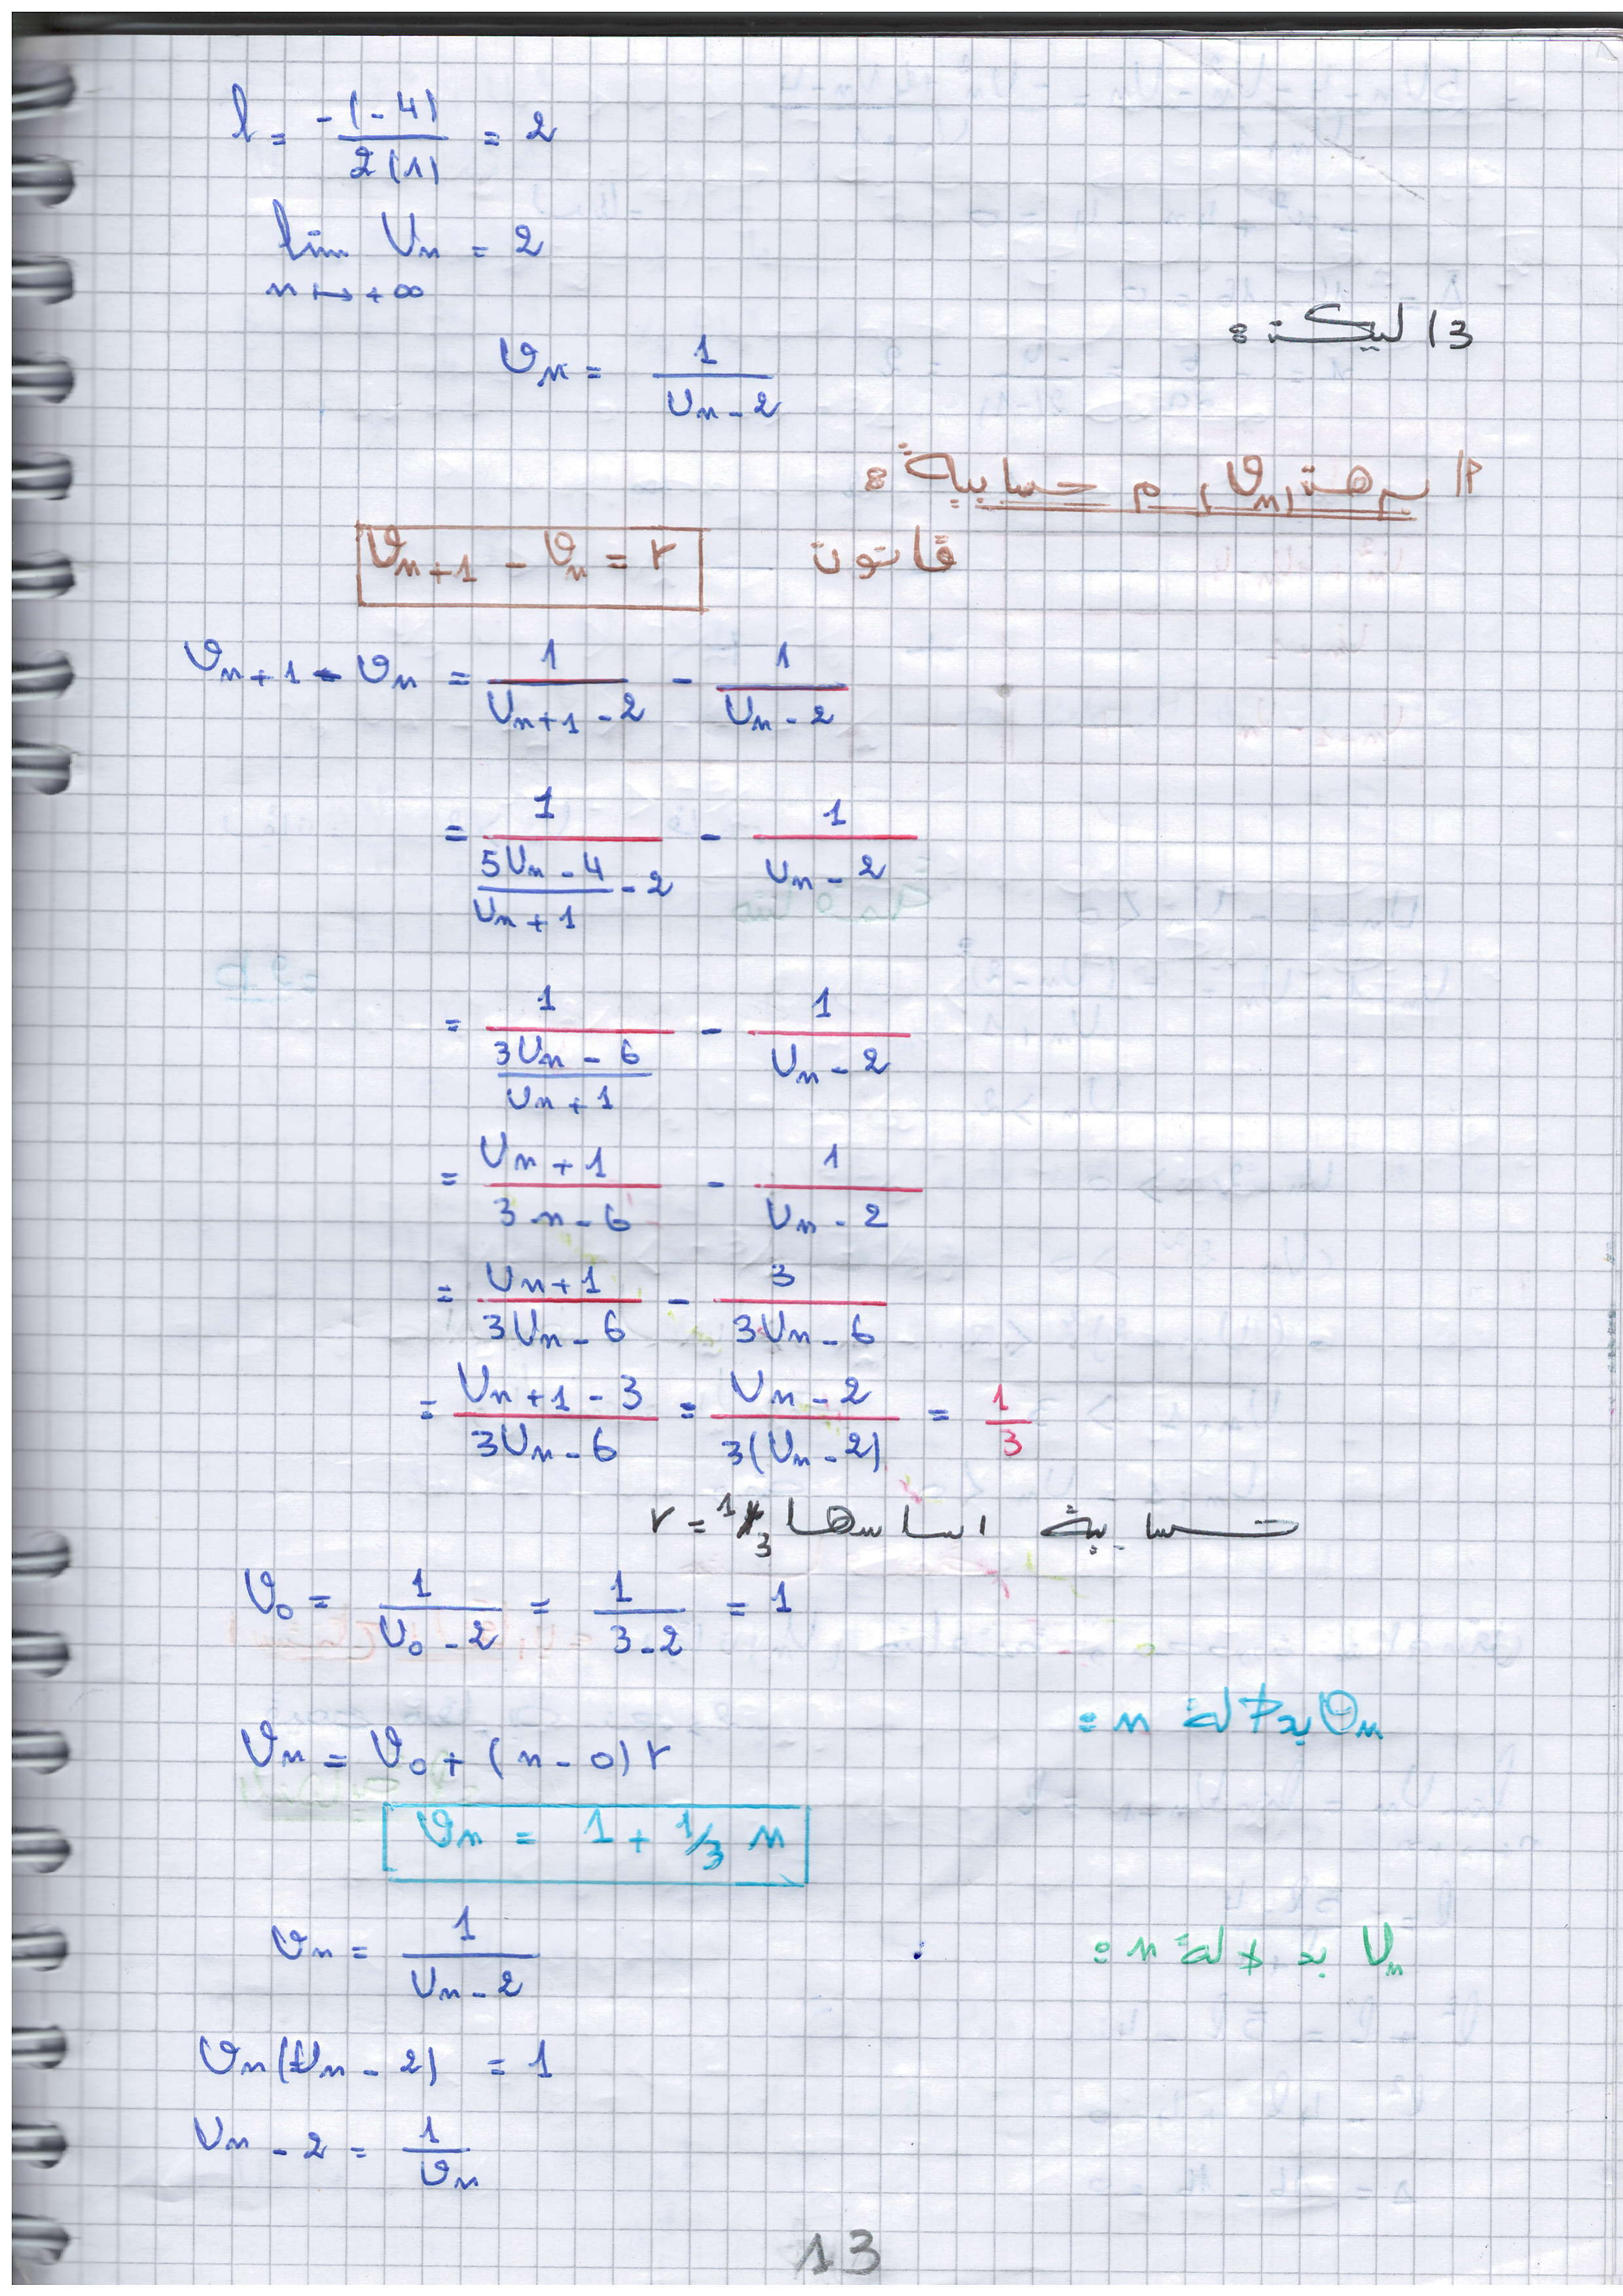 l = -(-4) / 2(1) = 2
lim Un = 2
n ↦ +∞
3) ليكن :
𝒱n = 1 / (Un - 2)
أ) برهن (𝒱n) م حسابية :
قانون 𝒱n+1 - 𝒱n = r
𝒱n+1 - 𝒱n = 1 / (Un+1 - 2) - 1 / (Un - 2)
= 1 / ((5Un - 4) / (Un + 1) - 2) - 1 / (Un - 2)
= 1 / ((3Un - 6) / (Un + 1)) - 1 / (Un - 2)
= (Un + 1) / (3n - 6) - 1 / (Un - 2)
= (Un + 1) / (3Un - 6) - 3 / (3Un - 6)
= (Un + 1 - 3) / (3Un - 6) = (Un - 2) / 3(Un - 2) = 1/3
حسابية اساسها r = 1/3
𝒱0 = 1 / (U0 - 2) = 1 / (3 - 2) = 1
𝒱n بدلالة n =
𝒱n = 𝒱0 + (n - 0) r
𝒱n = 1 + 1/3 n
Un بدلالة n :
𝒱n = 1 / (Un - 2)
𝒱n(Un - 2) = 1
Un - 2 = 1 / 𝒱n
13